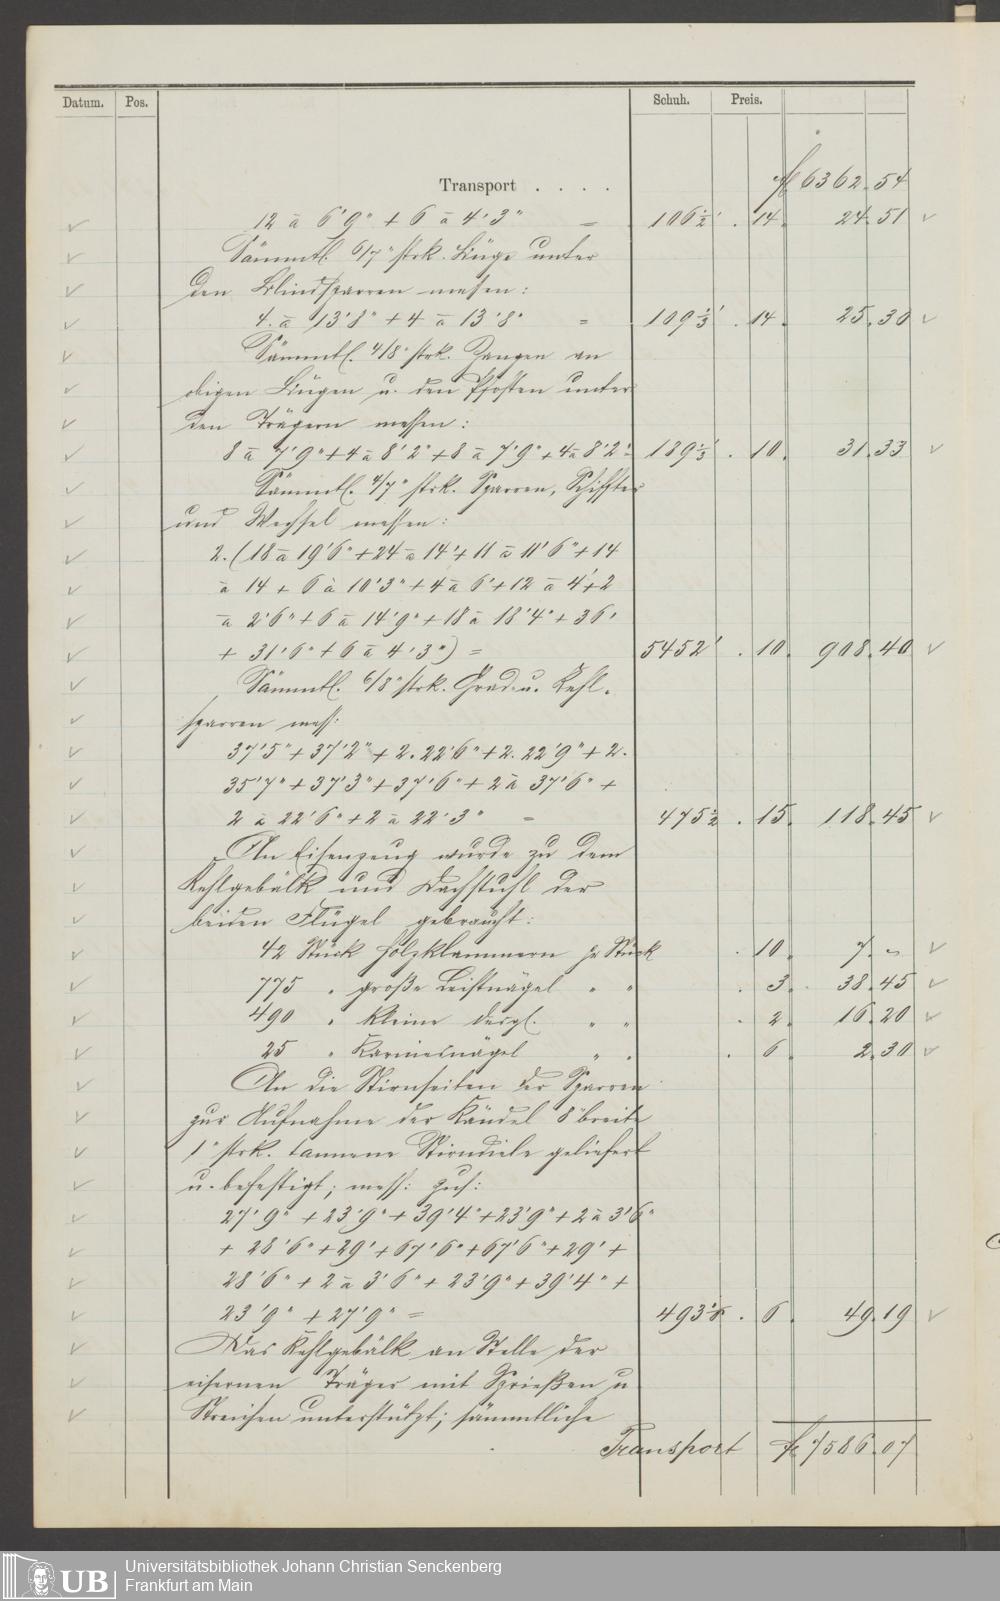 Datum. Pos. Schuh. Preis.
Transport . . . . fl 6362.54
12 à 6'9" + 6 à 4'3" = 106½' . 14. 24.51
Sämmtl. 6/7" strk. Büge unter
den Blindsparren messen:
4. à 13'8" + 4 à 13'8" = 109⅓' . 14. 25.30
Sämmtl. 4/8" strk. Zangen an
obigen Bügen u. den Pfosten unter
den Trägern messen:
8 à 7'9" + 4 à 8'2" + 8 à 7'9" + 4 à 8'2" = 189⅓' . 10. 31.33
Sämmtl. 4/7" strk. Sparren, Schifter
und Wechsel messen:
2. (18 à 19'6" + 24 à 14' + 11 à 11'6" + 14
à 14 + 6 à 10'3" + 4 à 6' + 12 à 4' + 2
à 2'6" + 6 à 14'9" + 18 à 18'4" + 36'
+ 31'6" + 6 à 4'3") = 5452' . 10. 908.40
Sämmtl. 6/8" strk. Grad- u. Kehl-
sparren mess:
37'5" + 37'2" + 2. 22'6" + 2. 22'9" + 2.
35'7" + 37'3" + 37'6" + 2 à 37'6" +
2 à 22'6" + 2 à 22'3" = 475½ . 15. 118.45
An Eisenzeug wurde zu dem
Kehlgebälk und Dachstuhl der
beiden Flügel gebraucht:
42 Stück Holzklammern pr Stück . 10. 7. –
775 " große Leistnägel " " . 3. 38.45
490 " kleine desgl. " " . 2. 16.20
25 " Karniesnägel " " . 6 2.30
An die Stirnseiten der Sparren
zur Aufnahme der Kändel 8" breite
1" strk. tannene Stirndiele geliefert
u. befestigt; mess: zus:
27'9" + 23'9" + 39'4" + 23'9" + 2 à 3'6"
+ 28'6" + 29' + 67'6" + 67'6" + 29' +
28'6" + 2 à 3'6" + 23'9" + 39'4" +
23'9" + 27'9" = 493 . 6. 49.19
Das Kehlgebälk an Stelle der
eisernen Träger mit Sprießen u
Streichen unterstützt; sämmtliche
Transport fl 7586.07
Universitätsbibliothek Johann Christian Senckenberg
UB Frankfurt am Main